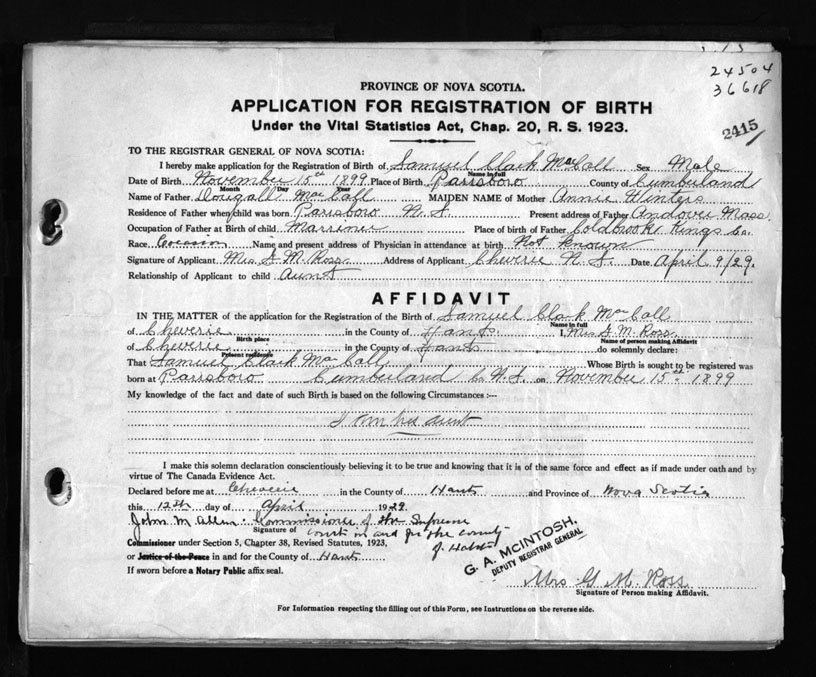 24504
36618
2415
PROVINCE OF NOVA SCOTIA.
APPLICATION FOR REGISTRATION OF BIRTH
Under the Vital Statistics Act, Chap. 20, R. S. 1923.
TO THE REGISTRAR GENERAL OF NOVA SCOTIA:
I hereby make application for the Registration of Birth of Samuel Clark MacCall Sex Male
Name in full
Date of Birth November 15th 1899 Place of Birth Parrsboro County of Cumberland
Month Day Year
Name of Father Dougall MacCall MAIDEN NAME of Mother Annie Winters
Residence of Father when child was born Parrsboro N.S. Present address of Father Andover Mass.
Occupation of Father at Birth of child Marriner Place of birth of Father Coldbrook Kings Co.
Race Name and present address of Physician in attendance at birth Not known
Signature of Applicant Mrs. G. M. Ross. Address of Applicant Cheverie N.S. Date April 9/29.
Relationship of Applicant to child Aunt
AFFIDAVIT
IN THE MATTER of the application for the Registration of the Birth of Samuel Clark MacCall
Name in full
of Cheverie in the County of Hants I, Mrs G. M. Ross
Birth place Name of person making Affidavit
of Cheverie in the County of Hants do solemnly declare:
Present residence
That Samuel Clark MacCall Whose Birth is sought to be registered was
born at Parrsboro Cumberland Co. N.S. on November 15th 1899
My knowledge of the fact and date of such Birth is based on the following Circumstances :—
I am his aunt
I make this solemn declaration conscientiously believing it to be true and knowing that it is of the same force and effect as if made under oath and by
virtue of The Canada Evidence Act.
Declared before me at Cheverie in the County of Hants and Province of Nova Scotia
this 12th day of April 1929
John M Allen. Commissioner of the Supreme
Signature of Court in and for the County
Commissioner under Section 5, Chapter 38, Revised Statutes, 1923, of Hants
or Justice of the Peace in and for the County of Hants
If sworn before a Notary Public affix seal.
G. A. McINTOSH,
DEPUTY REGISTRAR GENERAL
Mrs G M. Ross
Signature of Person making Affidavit.
For Information respecting the filling out of this Form, see Instructions on the reverse side.